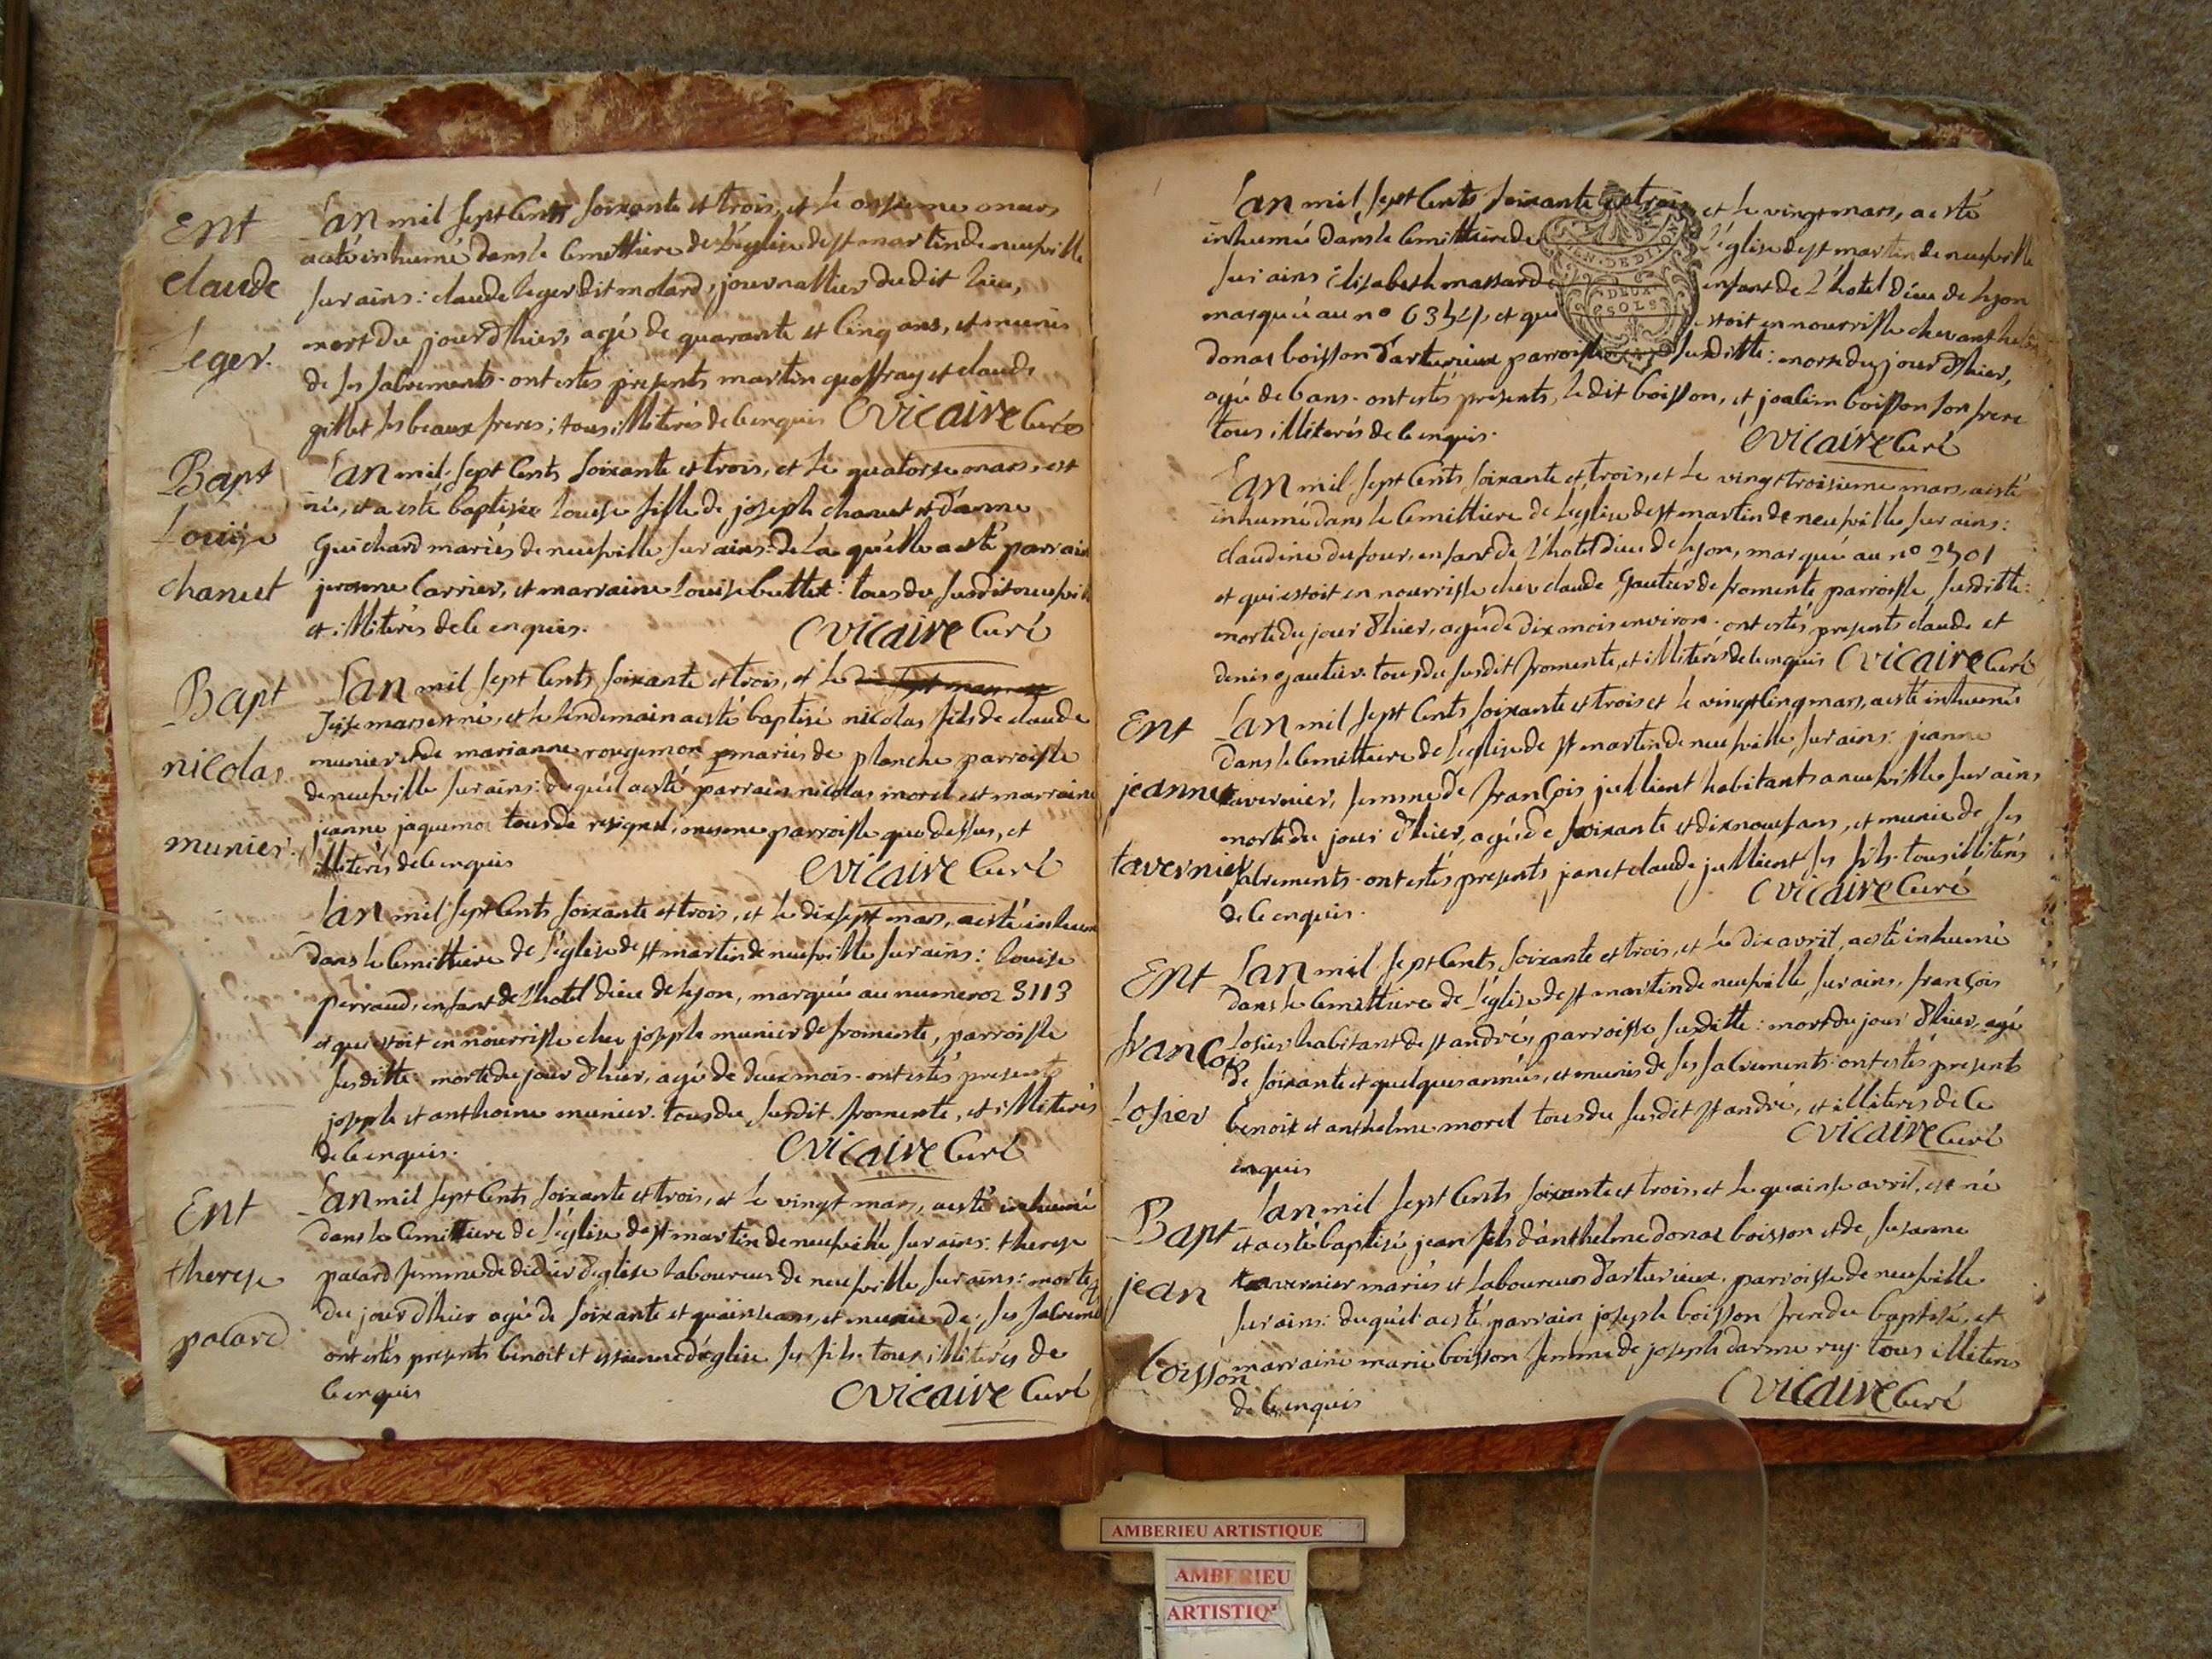 Ent
claude
Leger.
Lan mil sept Cents soixante et trois, et le onsieme mars
a esté inhumé dans le Cemettiere de l'église de st martin de neufville
sur ains: claude leger dit molard, journallier dudit lieu,
mort du jour d'hier, agé de quarante et Cinq ans, et munis
de ses sacrements. ont estés présents martin geoffray et claude
gillet ses beaux freres; tous illiterés de ce enquis Cvicaire Curé
Bapt
Louise
chanut
Lan mil sept Cents soixante et trois, et le quatorse mars, est
née, et a esté baptisée louise fille de joseph chanut et d'anne
Guichard mariés de neufville sur ains: de la quelle a esté parrain
jerosme Carrier, et marraine louise buttet: tous du susdit neufville
et illiterés de ce enquis. Cvicaire Curé
Bapt
nicolas
munier.
Lan mil sept Cents soixante et trois, et le
seise mars est né, et le lendemain a esté baptisé nicolas fils de claude
munier et de marianne rougemon mariés de planche parroisse
de neufville sur ains: duquel a esté parrain nicolas morel et marraine
jeanne jaquemoi tous de resignel, mesme parroisse que dessus, et
illiterés de ce enquis Cvicaire Curé
Lan mil sept Cents soixante et trois, et le dix sept mars, a esté inhumé
dans le Cemittiere de l'église de st martin de neufville sur ains: louise
perraud, enfant de l'hotel dieu de lyon, marquée au numeros 3113
et qui estoit en nourrisse chez joseph munier de fromente, parroisse
susditte: morte du jour d'hier, agé de deux mois. ont estés presents
joseph et anthoine munier. tous du susdit fromente, et illiterés
de ce enquis. Cvicaire Curé
Ent
therese
pacard
Lan mil sept Cents soixante et trois, et le vingt mars, a esté inhumé
dans le Cemittiere de l'église de st martin de neufville sur ains: therese
pacard femme de didier d'eglise laboureur de neufville sur ains: morte
du jour d'hier agé de soixante et quainse ans, et munie de ses sacrements
ont estés presents benoit et estienne d'église ses fils. tous illiterés de
ce enquis Cvicaire Curé
Lan mil sept Cents soixante et trois, et le vingt mars, a esté
inhumé dans le Cemittiere de l'église de st martin de neufville
sur ains Elisabeth massard enfant de l'hotel dieu de lyon
marquée au no 6354, et qui estoit en nourrisse chez anthelme
donat boisson d'arturieux parroisse susditte: morte du jour d'hier,
agé de 6 ans. ont estés présents, le dit boisson, et joacim boisson son frere
tous illiterés de ce enquis. Cvicaire Curé
DEUX
SOLS
Lan mil sept Cents soixante et trois, et le vingt troisieme mars, a esté
inhumé dans le Cemittiere de l'église de st martin de neufville sur ains:
claudine dufour, enfant de l'hotel dieu de lyon, marquée au no 2501
et qui estoit en nourrisse chez claude Gautier de fromente parroisse susditte:
morte du jour d'hier, agé de dix mois environ. ont estés presents claude et
denis gautier. tous du susdit fromente, et illiterés de ce enquis Cvicaire Curé
Ent
jeanne
tavernier
Lan mil sept Cents soixante et trois et le vingt Cinq mars, a esté inhumé
dans le Cemittiere de l'église de st martin de neufville sur ains: jeanne
tavernier, femme de françois jullient habitants a neufville sur ains
morte du jour d'hier, agé de soixante et dix neuf ans, et munie de ses
sacrements. ont estés presents jean et claude jullient ses fils. tous illiterés
de ce enquis. Cvicaire Curé
Ent
françois
Losier
Lan mil sept Cents soixante et trois, et le dix avril, a esté inhumé
dans le Cemittiere de l'église de st martin de neufville sur ains, françois
losier habitant de st andré, parroisse susditte: mort du jour d'hier, agé
de soixante et quelques années, et munis de ses sacrements. ont estés presents
benoit et anthelme morel tous du susdit st andré, et illiterés de ce
enquis Cvicaire Curé
Bapt
jean
boisson
Lan mil sept Cents soixante et trois et le quainse avril, est né
et a esté baptisé, jean fils d'anthelme donat boisson et de susanne
tavernier mariés et laboureurs d'arturieux, parroisse de neufville
sur ains: duquel a esté parrain joseph boisson frere du baptisé, et
marraine marie boisson femme de joseph darme ruy. tous illiterés
de ce enquis Cvicaire Curé
AMBERIEU ARTISTIQUE
AMBERIEU
ARTISTIQ